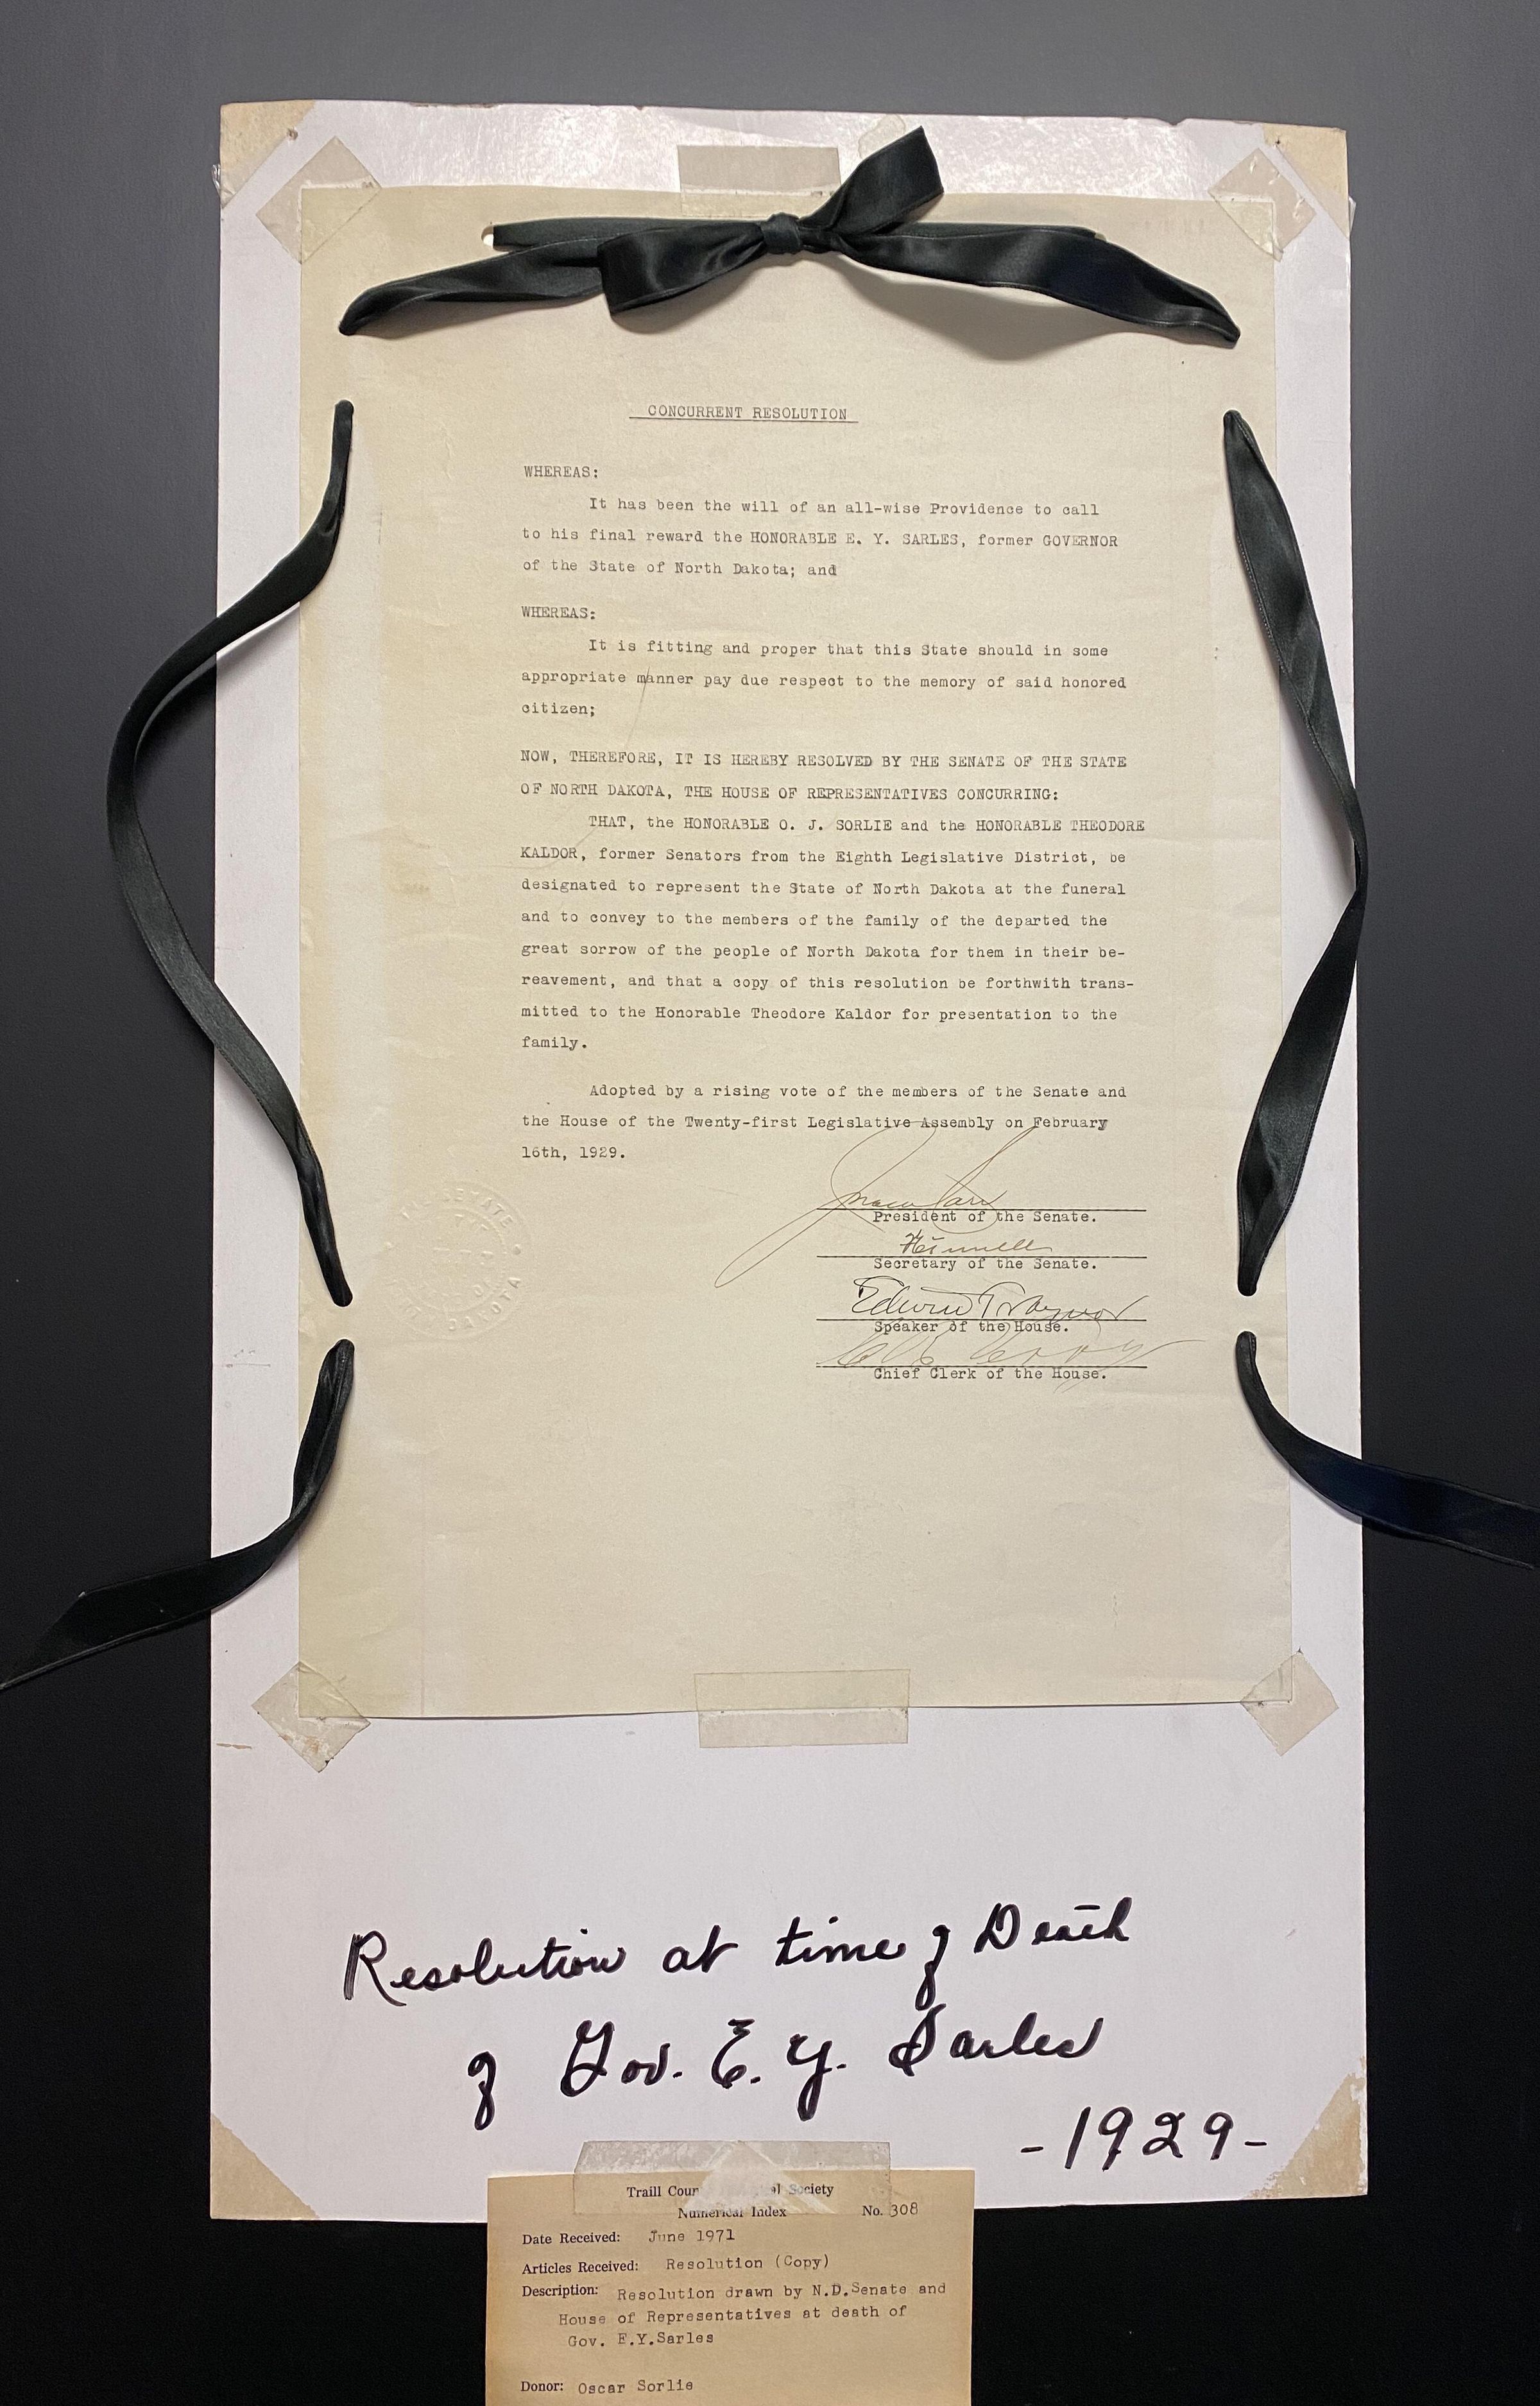 CONCURRENT RESOLUTION
WHEREAS:
It has been the will of an all-wise Providence to call
to his final reward the HONORABLE E. Y. SARLES, former GOVERNOR
of the State of North Dakota; and
WHEREAS:
It is fitting and proper that this State should in some
appropriate manner pay due respect to the memory of said honored
citizen;
NOW, THEREFORE, IT IS HEREBY RESOLVED BY THE SENATE OF THE STATE
OF NORTH DAKOTA, THE HOUSE OF REPRESENTATIVES CONCURRING:
THAT, the HONORABLE O. J. SORLIE and the HONORABLE THEODORE
KALDOR, former Senators from the Eighth Legislative District, be
designated to represent the State of North Dakota at the funeral
and to convey to the members of the family of the departed the
great sorrow of the people of North Dakota for them in their be-
reavement, and that a copy of this resolution be forthwith trans-
mitted to the Honorable Theodore Kaldor for presentation to the
family.
Adopted by a rising vote of the members of the Senate and
the House of the Twenty-first Legislative Assembly on February
16th, 1929.
SENATE
DAKOTA
President of the Senate.
Secretary of the Senate.
Edwin Traynor
Speaker of the House.
Chief Clerk of the House.
Resolution at time of Death
of Gov. E. Y. Sarles
-1929-
Traill Society
Numerical Index No. 308
Date Received: June 1971
Articles Received: Resolution (Copy)
Description: Resolution drawn by N.D.Senate and
House of Representatives at death of
Gov. E.Y.Sarles
Donor: Oscar Sorlie